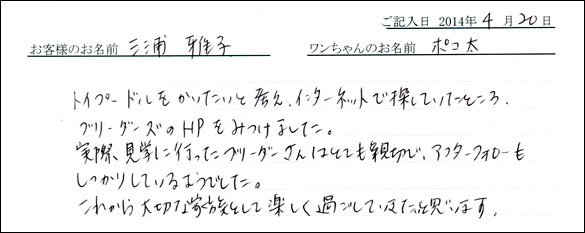 ご記入日 2014年4月20日
お客様のお名前 三浦 雅子 ワンちゃんのお名前 ポコ太
トイプードルをかいたいと考え、インターネットで探していたところ、
ブリーダーズのHPをみつけました。
実際、見学に行ったブリーダーさんはとても親切で、アフターフォローも
しっかりしているようでした。
これから大切な家族として楽しく過ごしていきたいと思います。